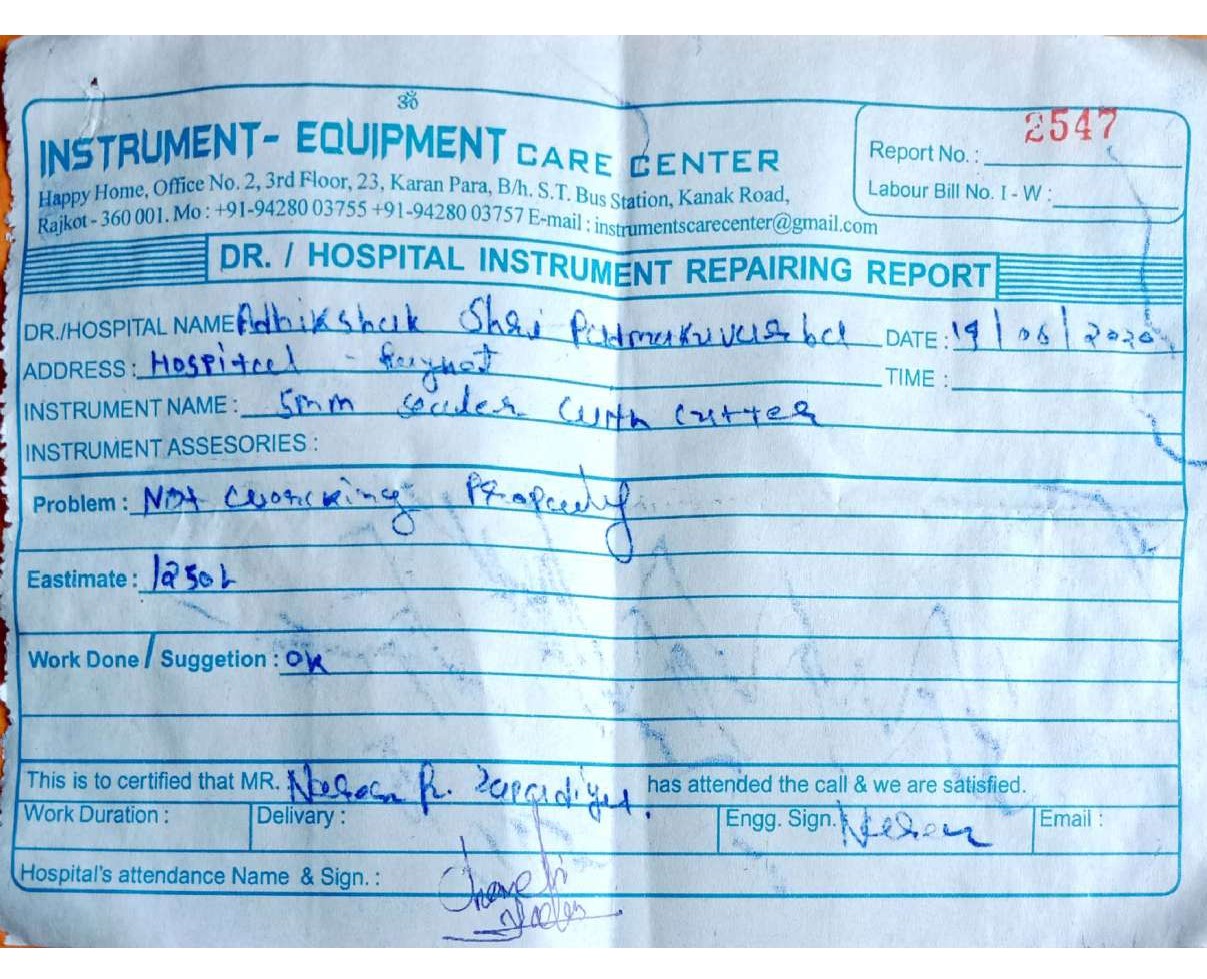 ॐ
INSTRUMENT- EQUIPMENT CARE CENTER
Happy Home, Office No. 2, 3rd Floor, 23, Karan Para, B/h. S.T. Bus Station, Kanak Road,
Rajkot - 360 001. Mo : +91-94280 03755 +91-94280 03757 E-mail : instrumentscarecenter@gmail.com
Report No. : 2547
Labour Bill No. I - W :
DR. / HOSPITAL INSTRUMENT REPAIRING REPORT
DR./HOSPITAL NAME Adhikshak Shri DATE : 19/06/2020
ADDRESS : Hospital - TIME :
INSTRUMENT NAME : 5mm with cutter
INSTRUMENT ASSESORIES :
Problem : Not working Properly
Eastimate :
Work Done / Suggetion : OK
This is to certified that MR. R. has attended the call & we are satisfied.
Work Duration : Delivary : Engg. Sign. Email :
Hospital's attendance Name & Sign. :